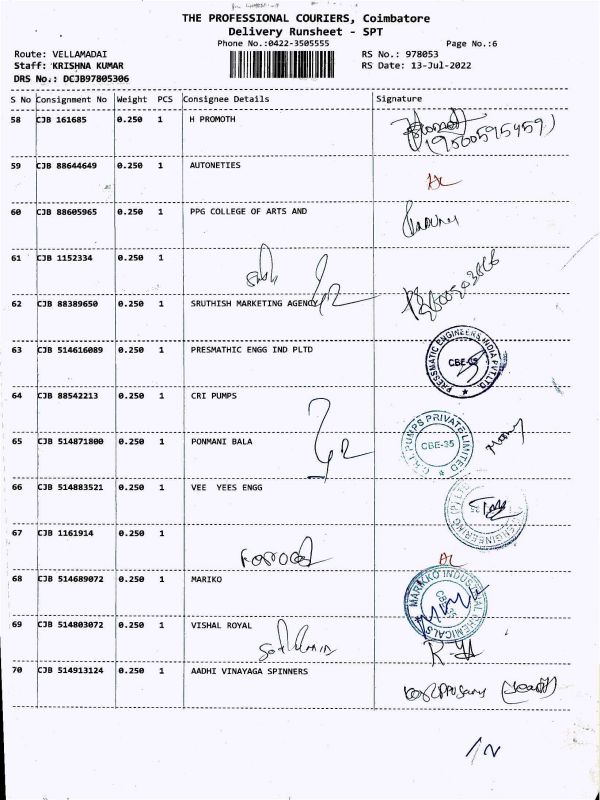 THE PROFESSIONAL COURIERS, Coimbatore
Delivery Runsheet - SPT
Phone No.:0422-3505555
Page No.:6
Route: VELLAMADAI
RS No.: 978053
Staff: KRISHNA KUMAR
RS Date: 13-Jul-2022
DRS No.: DCJB97805306
S No Consignment No Weight PCS Consignee Details Signature
58 CJB 161685 0.250 1 H PROMOTH
59 CJB 88644649 0.250 1 AUTONETIES
60 CJB 88605965 0.250 1 PPG COLLEGE OF ARTS AND
61 CJB 1152334 0.250 1
62 CJB 88389650 0.250 1 SRUTHISH MARKETING AGENCY
63 CJB 514616089 0.250 1 PRESMATHIC ENGG IND PLTD
PRESSMATIC ENGINEERS INDIA PVT.LTD.
CBE-35
64 CJB 88542213 0.250 1 CRI PUMPS
C.R.I. PUMPS PRIVATE LIMITED
CBE-35
65 CJB 514871800 0.250 1 PONMANI BALA
66 CJB 514883521 0.250 1 VEE YEES ENGG
ENGINEERING (P) LTD
67 CJB 1161914 0.250 1
68 CJB 514689072 0.250 1 MARIKO
MARIKKO INDUSTRIAL CHEMICALS
69 CJB 514803072 0.250 1 VISHAL ROYAL
70 CJB 514913124 0.250 1 AADHI VINAYAGA SPINNERS